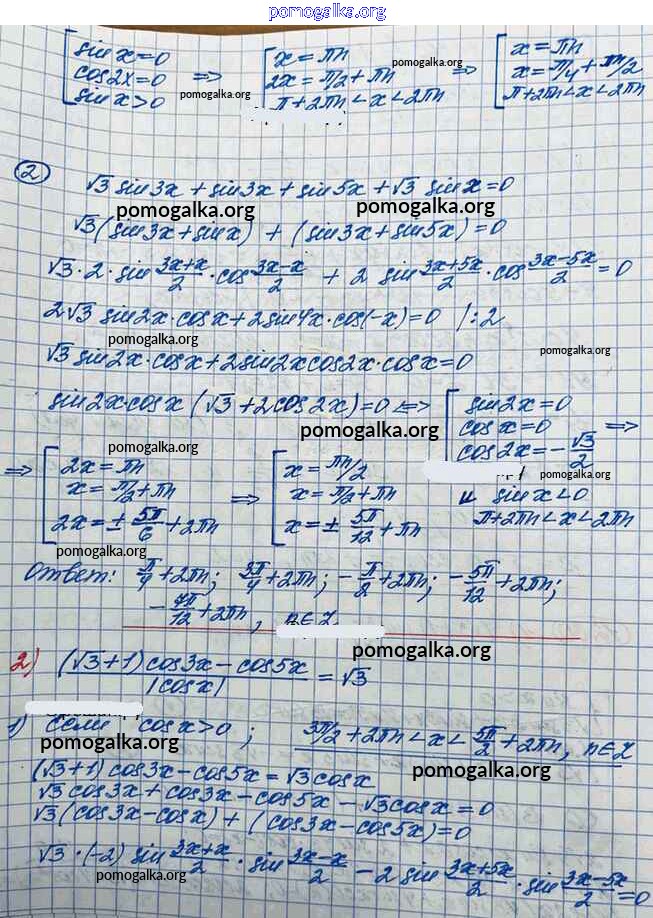 pomogalka.org
sin x=0 x=πn x=πn
cos2x=0 => 2x=π/2+πn => x=π/4+πn/2
sin x>0 π+2πn<x<2πn π+2πn<x<2πn
pomogalka.org pomogalka.org pomogalka.org
② √3 sin3x + sin3x + sin5x + √3 sinx=0
pomogalka.org pomogalka.org
√3(sin3x+sinx) + (sin3x+sin5x)=0
√3·2·sin (3x+x)/2 · cos (3x-x)/2 + 2 sin (3x+5x)/2 · cos (3x-5x)/2 =0
2√3 sin2x·cosx+2sin4x·cos(-x)=0 /:2
pomogalka.org pomogalka.org
√3 sin2x·cosx+2sin2xcos2x·cosx=0
sin2x·cosx(√3+2cos2x)=0 <=> sin2x=0
pomogalka.org cosx=0 =>
pomogalka.org cos2x=-√3/2
=> 2x=πn x=πn/2 и sinx<0
x=π/2+πn => x=π/2+πn π+2πn<x<2πn
2x=±5π/6+2πn x=±5π/12+πn
pomogalka.org
Ответ: π/4+2πn; 3π/4+2πn; -π/2+2πn; -5π/12+2πn;
-7π/12+2πn, n∈Z
pomogalka.org
2) ((√3+1)cos3x-cos5x)/|cosx| =√3
1) Если cosx>0; 3π/2+2πn<x<5π/2+2πn, n∈Z
pomogalka.org pomogalka.org
(√3+1)cos3x-cos5x=√3cosx
√3cos3x+cos3x-cos5x-√3cosx=0
√3(cos3x-cosx)+(cos3x-cos5x)=0
√3·(-2) sin (3x+x)/2 · sin (3x-x)/2 -2 sin (3x+5x)/2 · sin (3x-5x)/2 =0
pomogalka.org pomogalka.org